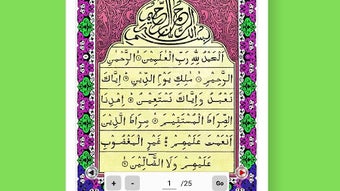 بِسْمِ اللّٰهِ الرَّحْمٰنِ الرَّحِيْمِ
اَلْحَمْدُ لِلّٰهِ رَبِّ الْعٰلَمِيْنَ ۝ الرَّحْمٰنِ
الرَّحِيْمِ ۝ مٰلِكِ يَوْمِ الدِّيْنِ ۝ اِيَّاكَ
نَعْبُدُ وَاِيَّاكَ نَسْتَعِيْنُ ۝ اِهْدِنَا
الصِّرَاطَ الْمُسْتَقِيْمَ ۝ صِرَاطَ الَّذِيْنَ
اَنْعَمْتَ عَلَيْهِمْ ۝ غَيْرِ الْمَغْضُوْبِ
عَلَيْهِمْ وَلَا الضَّآلِّيْنَ ۝
+ - 1 /25 Go